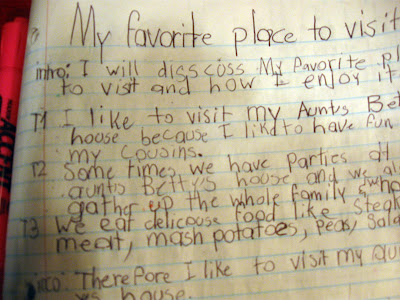 My favorite place to visit
intro: I will disscoss My favorite
to visit and how I enjoy it
T1 I like to visit my Aunts Bet
house because I likd to have fun
my cousins.
T2 Some times we have parties at
aunts Bettys house and we als
gather up the whole family
T3 we eat delicouse food like steak
meat, mash potatoes, peas, sala
Therefore I like to visit my Aun
house.